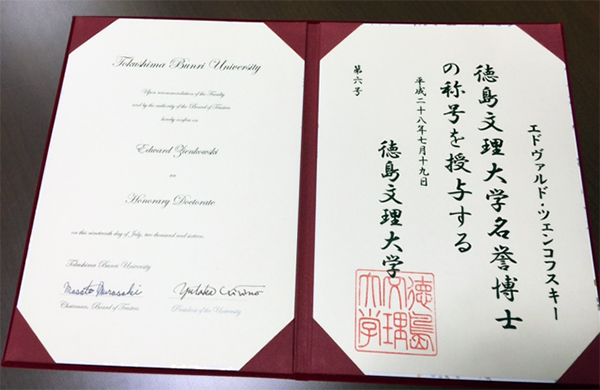 Tokushima Bunri University
Upon recommendation of the Faculty
and by the authority of the Board of Trustees
hereby confers on
Edward Zienkowski
an
Honorary Doctorate
on this nineteenth day of July, two thousand and sixteen.
Tokushima Bunri University
Masato Murasaki
Chairman, Board of Trustees
Yutaka Kirino
President of the University
エドヴァルド・ツェンコフスキー
徳島文理大学名誉博士
の称号を授与する
平成二十八年七月十九日
徳島文理大学
第六号
徳島
文理
大学